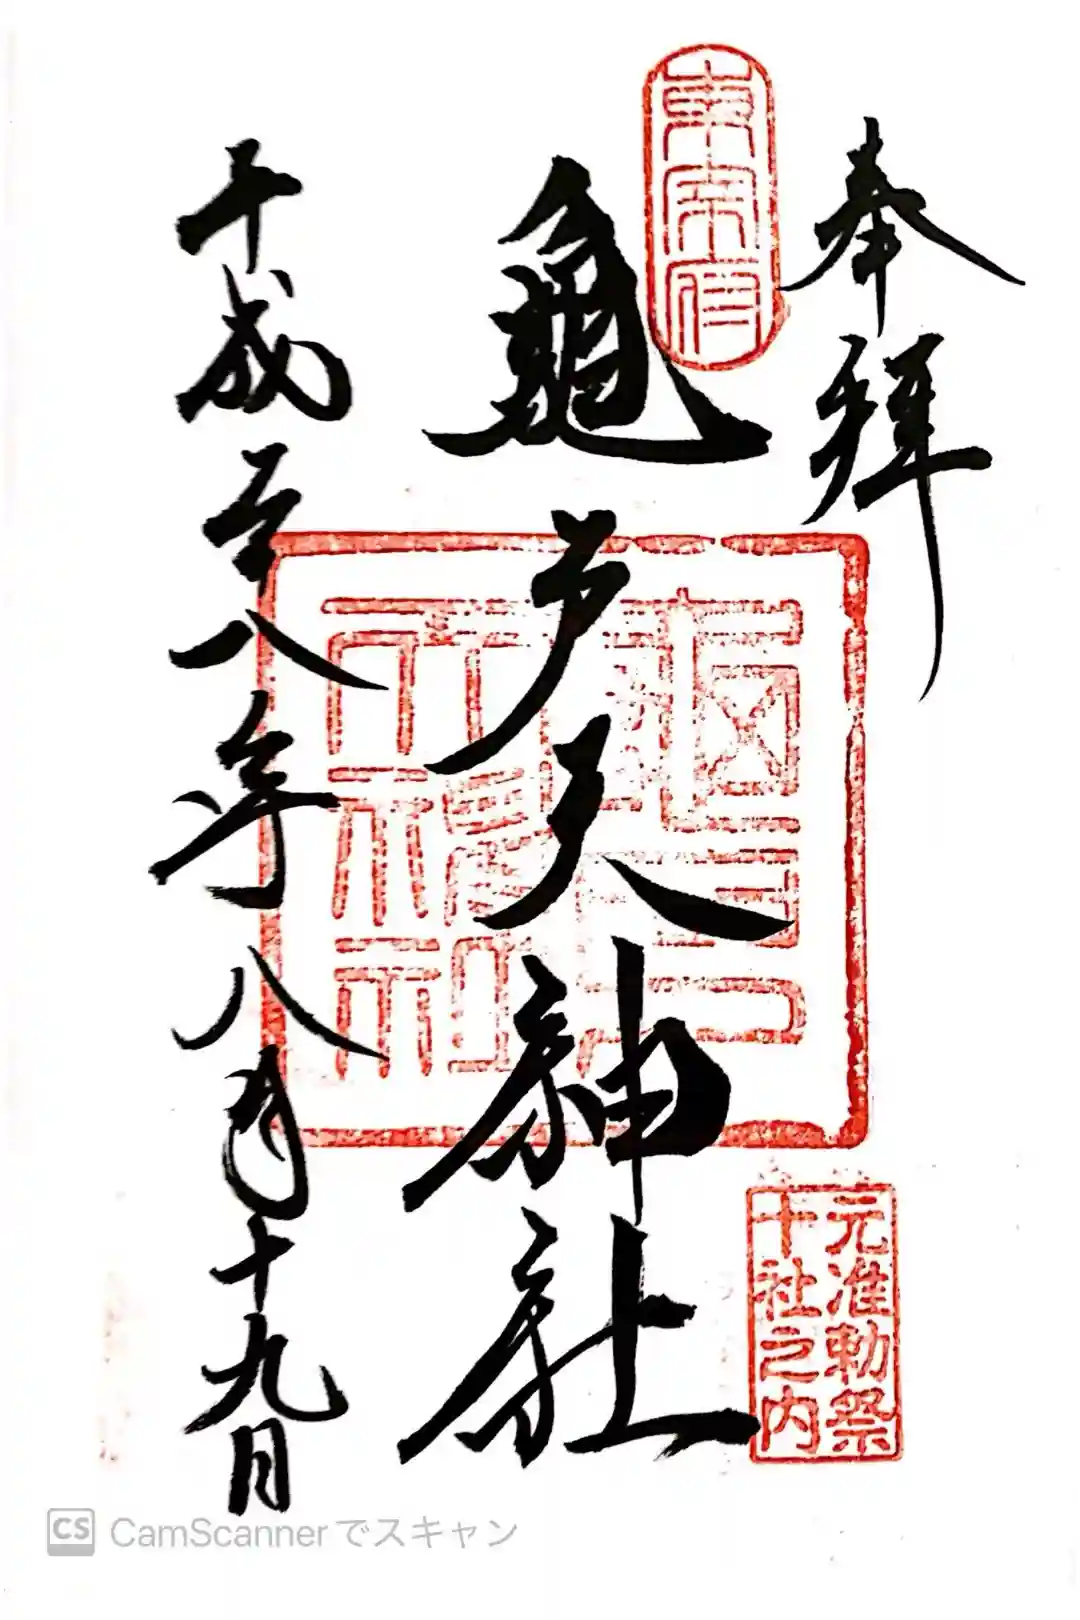 奉拝
東宰府
龜戸天神社
元准勅祭
十社之内
平成二十八年八月十九日
CS CamScannerでスキャン